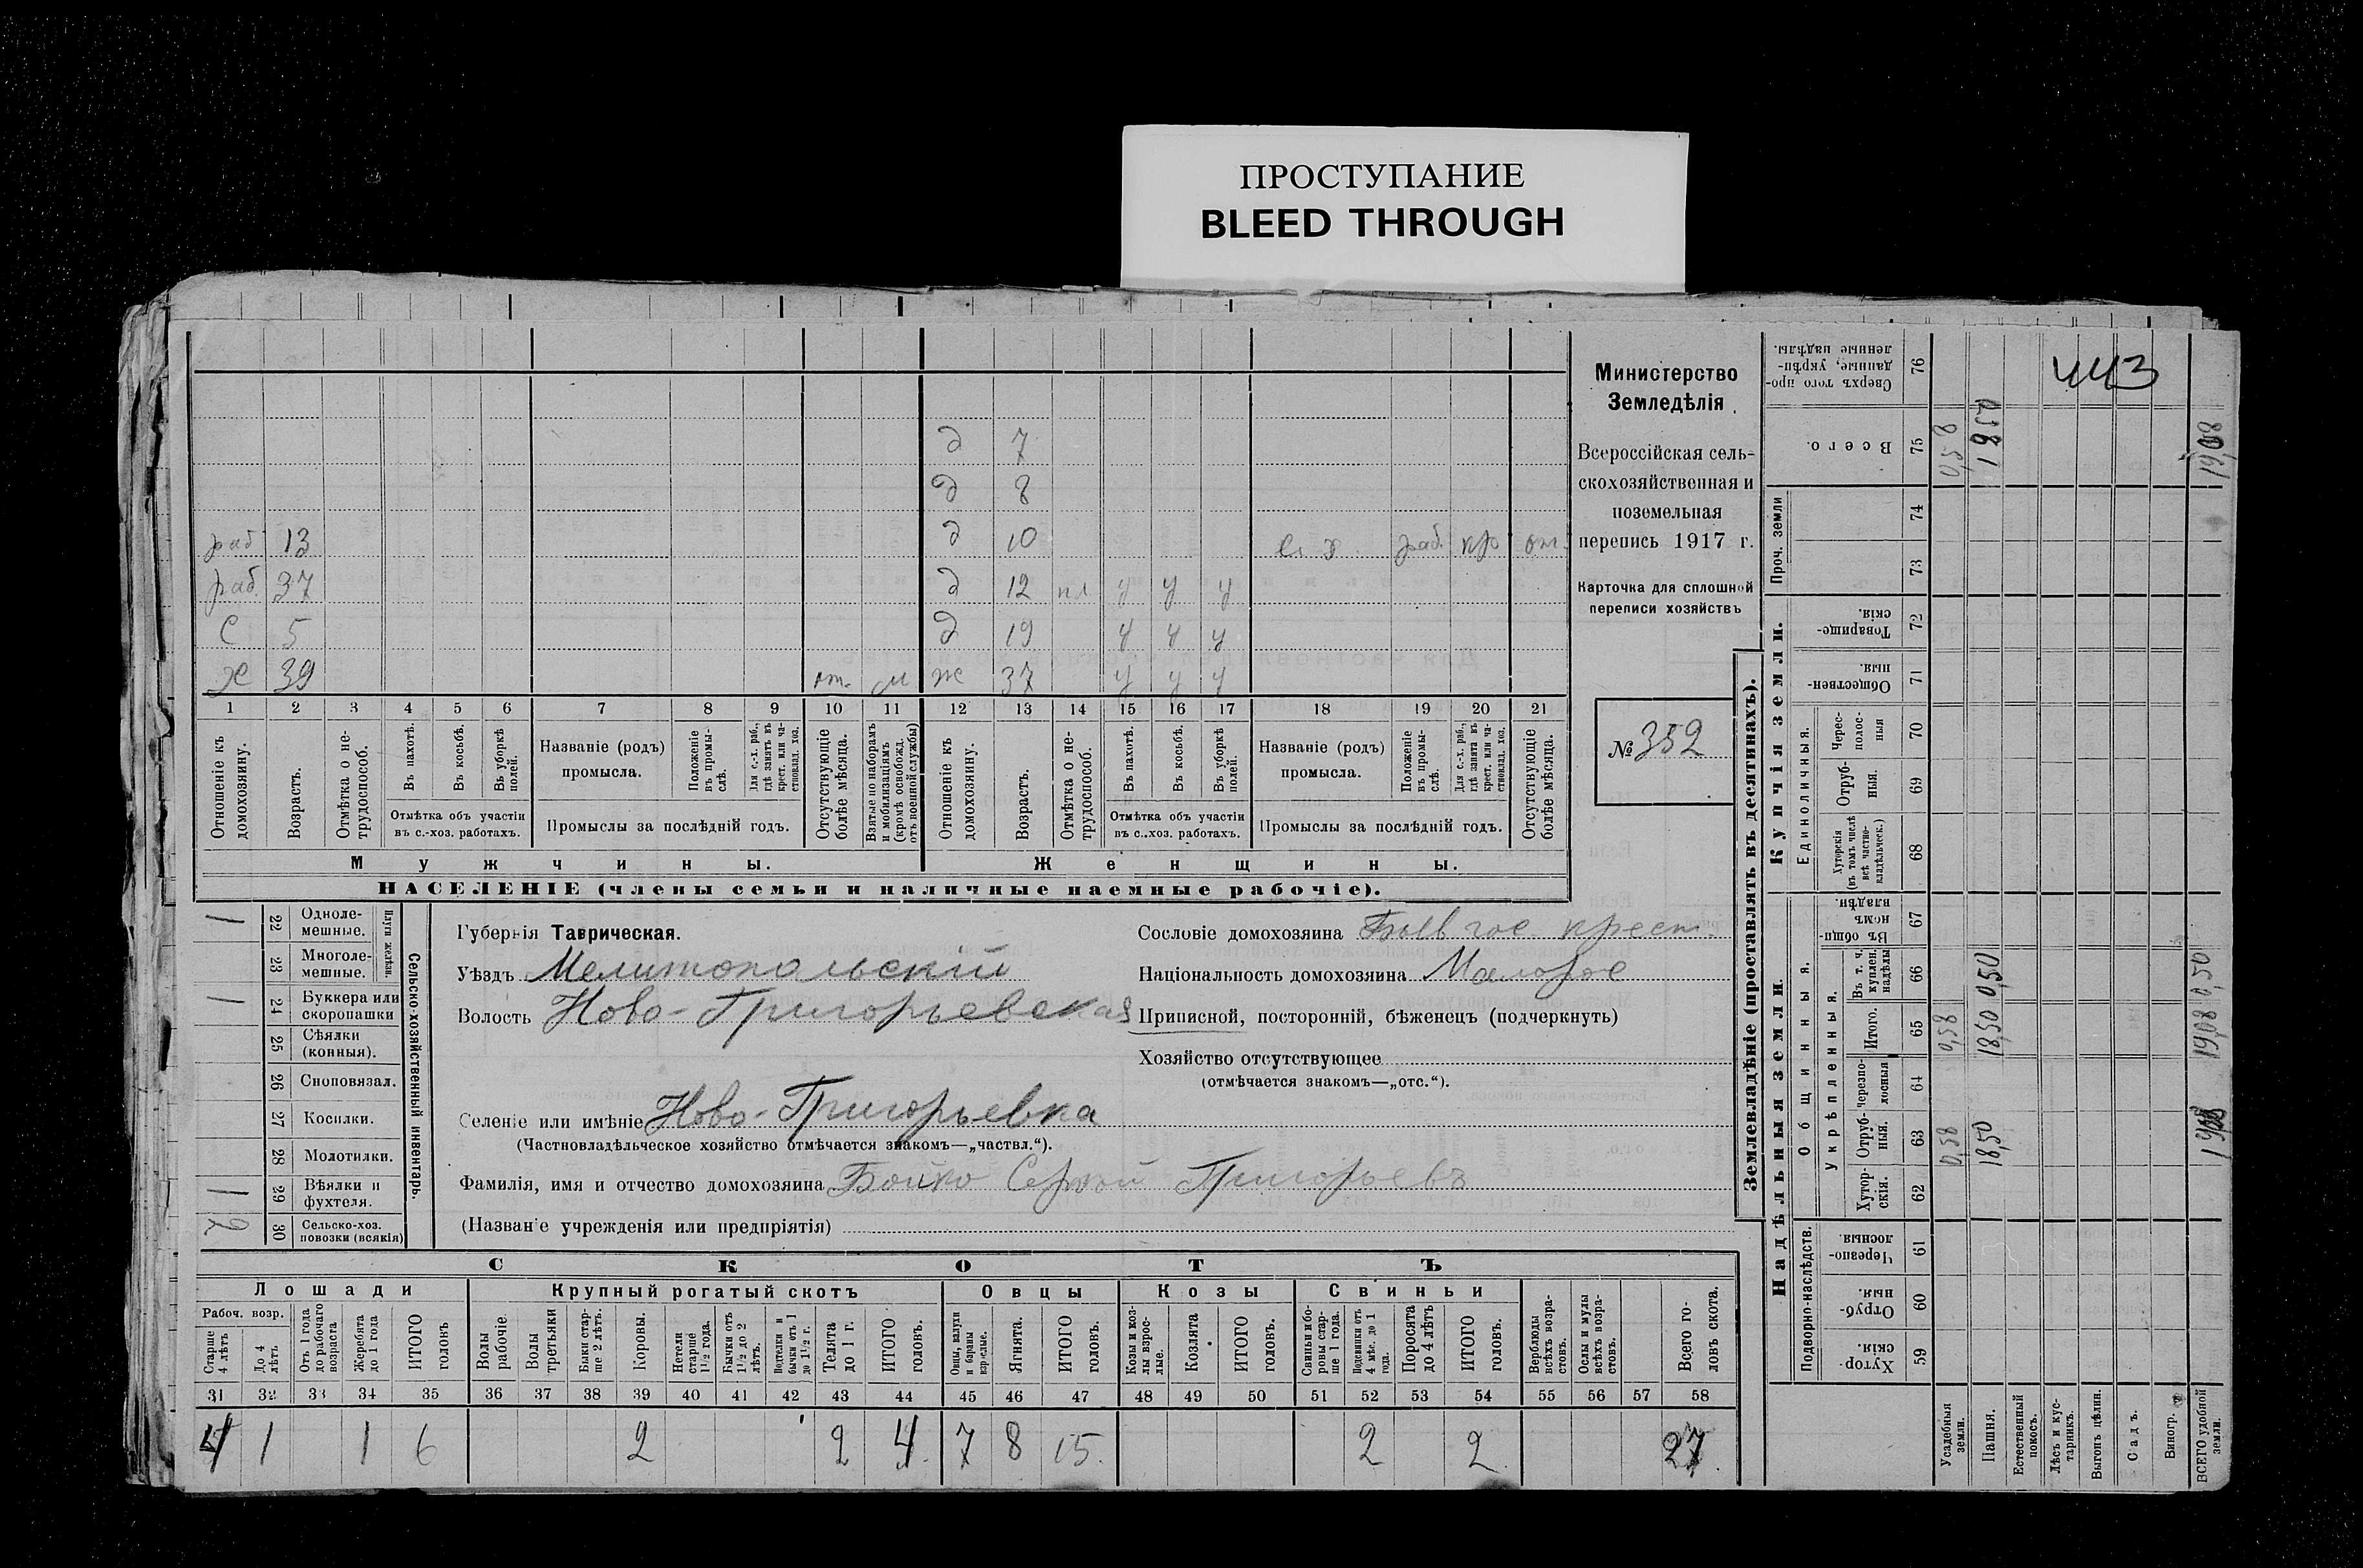 ПРОСТУПАНИЕ
BLEED THROUGH
Министерство
Земледѣлія.
Всероссійская сель-
скохозяйственная и
поземельная
перепись 1917 г.
Карточка для сплошной
переписи хозяйствъ
№ 352
443
д 7
д 8
раб 13 д 10 с. х. раб. кр от.
раб. 37 д 12 пл у у у
с 5 д 19 у у у
х 39 от. м ж 37 у у у
1 2 3 4 5 6 7 8 9 10 11 12 13 14 15 16 17 18 19 20 21
Отношеніе къ домохозяину.
Возрастъ.
Отмѣтка о не-трудоспособ.
Въ пахотѣ.
Въ косьбѣ.
Въ уборкѣ полей.
Отмѣтка объ участіи
въ с.-хоз. работахъ.
Названіе (родъ)
промысла.
Положеніе въ промы-слѣ.
Для с.-х. раб., гдѣ занятъ въ крест. или ча-стновлад. хоз.
Промыслы за послѣдній годъ.
Отсутствующіе болѣе мѣсяца.
Взятые по наборамъ и мобилизаціямъ (кромѣ освобожд. отъ военной службы)
Отношеніе къ домохозяину.
Возрастъ.
Отмѣтка о не-трудоспособ.
Въ пахотѣ.
Въ косьбѣ.
Въ уборкѣ полей.
Отмѣтка объ участіи
въ с.-хоз. работахъ.
Названіе (родъ)
промысла.
Положеніе въ промы-слѣ.
Для с.-х. раб., гдѣ занята въ крест. или ча-стновлад. хоз.
Промыслы за послѣдній годъ.
Отсутствующіе болѣе мѣсяца.
Мужчины. Женщины.
НАСЕЛЕНІЕ (члены семьи и наличные наемные рабочіе).
Сельско-хозяйственный инвентарь.
Плуги желѣзн.
1 22 Одноле-мешные.
23 Многоле-мешные.
1 24 Буккера или скоропашки
25 Сѣялки (конныя).
26 Сноповязал.
27 Косилки.
28 Молотилки.
1 29 Вѣялки и фухтеля.
2 30 Сельско-хоз. повозки (всякія)
Губернія Таврическая.
Уѣздъ Мелитопольскій
Волость Ново-Григорьевская
Селеніе или имѣніе Ново-Григорьевка
(Частновладѣльческое хозяйство отмѣчается знакомъ—„частвл.“).
Фамилія, имя и отчество домохозяина Бойко Сергѣй Григорьевъ
(Названіе учрежденія или предпріятія)
Сословіе домохозяина Быв гос крест.
Національность домохозяина Малорос
Приписной, посторонній, бѣженецъ (подчеркнуть)
Хозяйство отсутствующее
(отмѣчается знакомъ—„отс.“).
СКОТЪ
Лошади Крупный рогатый скотъ Овцы Козы Свиньи
Рабоч. возр.
Старше 4 лѣтъ
До 4 лѣтъ
Отъ 1 года до рабочаго возраста
Жеребята до 1 года
ИТОГО головъ
Волы рабочіе.
Волы третьяки
Быки стар-ше 2 лѣтъ.
Коровы.
Нетели старше 1½ года.
Бычки отъ 1½ до 2 лѣтъ.
Подтелки и бычки отъ 1 до 1½ г.
Телята до 1 г.
ИТОГО головъ.
Овцы, валухи и бараны взрослые.
Ягнята.
ИТОГО головъ.
Козы и коз-лы взрос-лые.
Козлята
ИТОГО головъ.
Свиньи и бо-ровы стар-ше 1 года.
Подсвинки отъ 4 мѣс. до 1 года.
Поросята до 4 лѣтъ
ИТОГО головъ.
Верблюды всѣхъ возра-стовъ.
Ослы и мулы всѣхъ возра-стовъ.
Всего го-ловъ скота.
31 32 33 34 35 36 37 38 39 40 41 42 43 44 45 46 47 48 49 50 51 52 53 54 55 56 57 58
4 1 1 6 2 2 4 7 8 15. 2 2 27
Землевладѣніе (проставлять въ десятинахъ).
Надѣльныя земли. Купчія земли.
Подворно-наслѣдств.
Общинныя.
Укрѣпленныя.
Единоличныя.
Проч. земли
Хутор-скія. 59
Отруб-ныя. 60
Черезпо-лосныя. 61
Хутор-скія. 62
Отруб-ныя. 63
Черезпо-лосныя 64
Итого. 65
Въ т. ч. куплен. надѣлы 66
Въ общи-номъ владѣн. 67
Хуторскія (въ томъ числѣ всѣ частно-владѣльческ.) 68
Отруб-ныя. 69
Черес-полос-ныя 70
Обществен-ныя. 71
Товарище-скія. 72
73
74
Всего. 75
Сверхъ того про-данные, укрѣп-ленные надѣлы. 76
Усадебныя земли. 0,58 0,58 0,58
Пашня. 18,50 18,50 0,50 1850
Естественный покосъ.
Лѣсъ и кус-тарникъ.
Выгонъ цѣлин.
Садъ.
Виногр.
ВСЕГО удобной земли. 1908 19,08 0,50 19,08